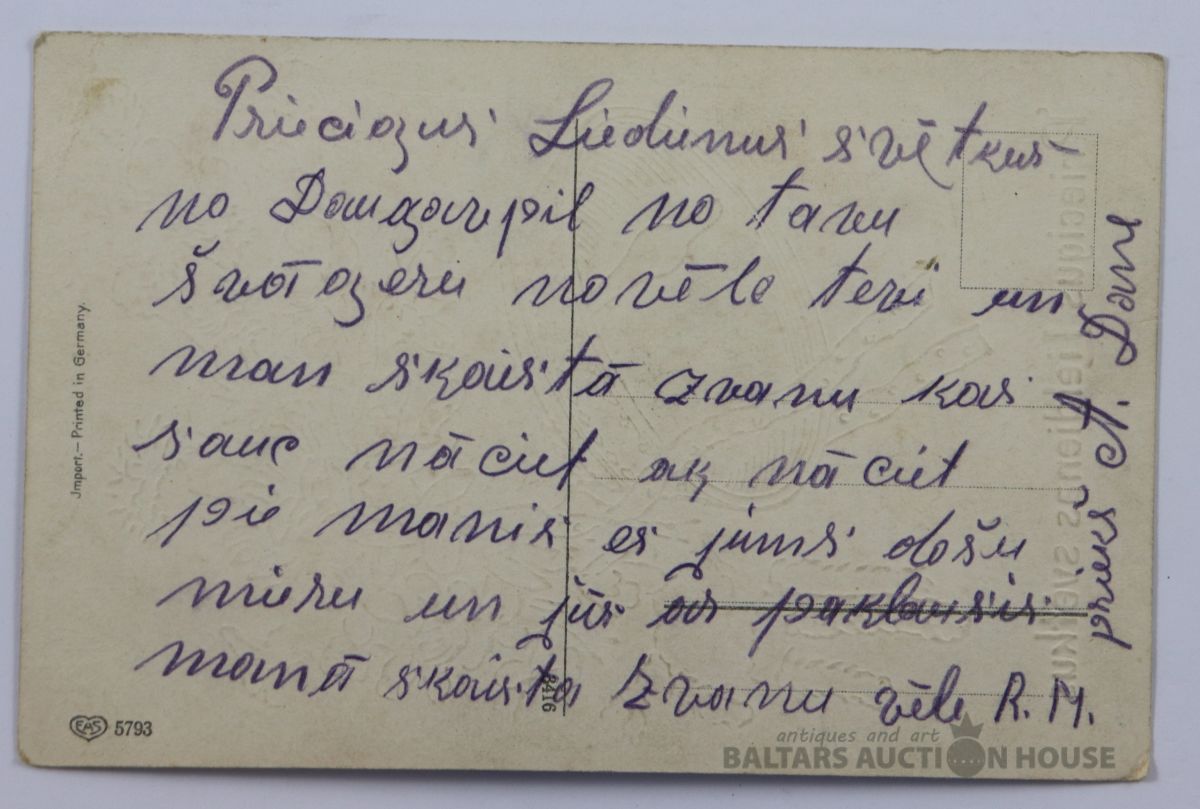 Priecigus Liedienus svētkus
no Daugavpil no tavu
švāgeru novēle tevi un
man skaistā zvanu kas
sauc nāciet ak nāciet
pie manis es jums došu
mieru un jūs as paklausis
manā skaista zvanu vēle R.M.
prieks A. Dāvu
Jmport.– Printed in Germany.
EAS 5793
8416
antiques and art
BALTARS AUCTION HOUSE